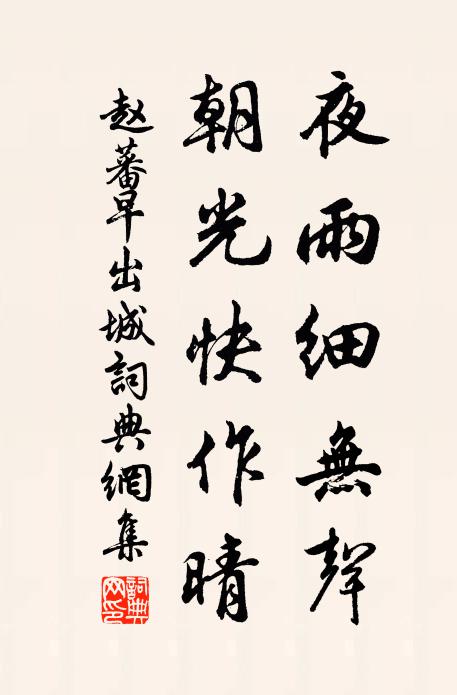 夜雨細無聲
朝光快作晴
赵蕃早出城詞典網集
詞典網印